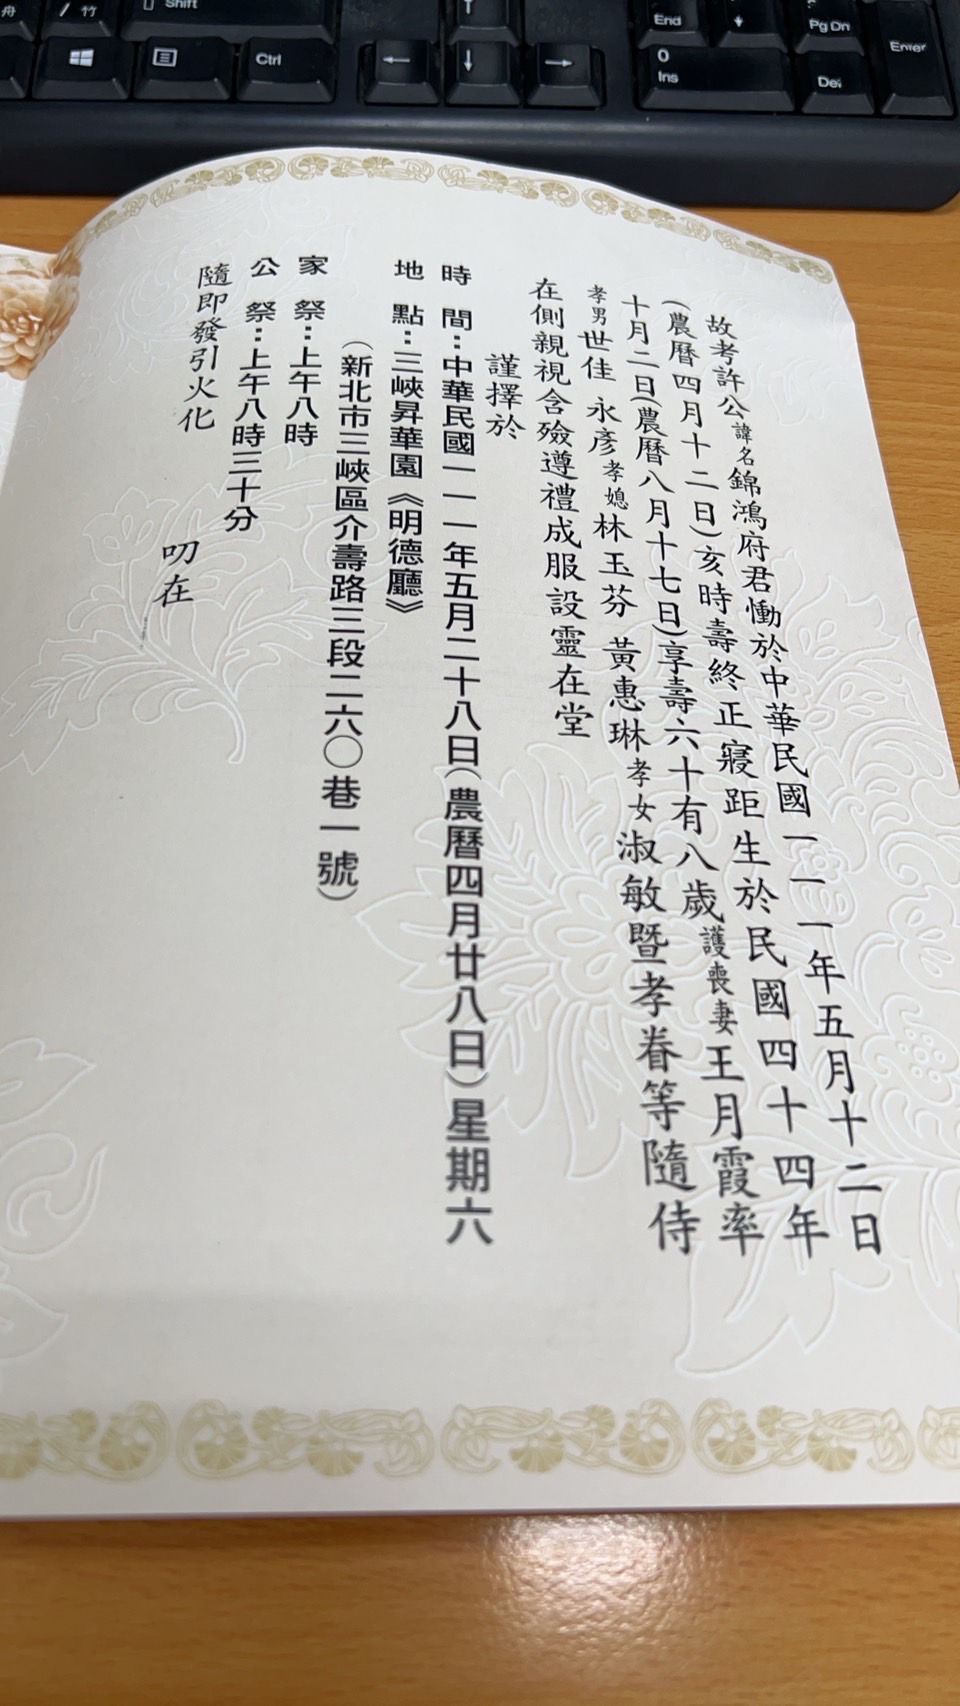 故考許公諱名錦鴻府君慟於中華民國一一一年五月十二日
(農曆四月十二日)亥時壽終正寢距生於民國四十四年
十月二日(農曆八月十七日)享壽六十有八歲護喪妻王月霞率
孝男世佳 永彥孝媳林玉芬 黃惠琳孝女淑敏暨孝眷等隨侍
在側親視含殮遵禮成服設靈在堂
謹擇於
時 間:中華民國一一一年五月二十八日(農曆四月廿八日)星期六
地 點:三峽昇華園《明德廳》
(新北市三峽區介壽路三段二六〇巷一號)
家 祭:上午八時
公 祭:上午八時三十分
隨即發引火化
叨在
Shift
End
Pg Dn
Enter
Ctrl
0
Ins
Del
竹
/
舟